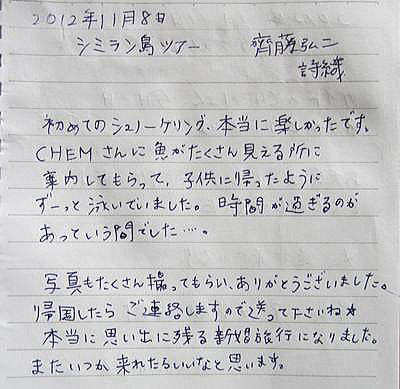 2012年11月8日
シミラン島ツアー 齊藤弘二
詩織
初めてのシュノーケリング、本当に楽しかったです。
CHEMさんに魚がたくさん見える所に
案内してもらって、子供に帰ったように
ずーっと泳いでいました。時間が過ぎるのが
あっという間でした…。
写真もたくさん撮ってもらい、ありがとうございました。
帰国したらご連絡しますので送って下さいね☆
本当に思い出に残る新婚旅行になりました。
またいつか来れたらいいなと思います。